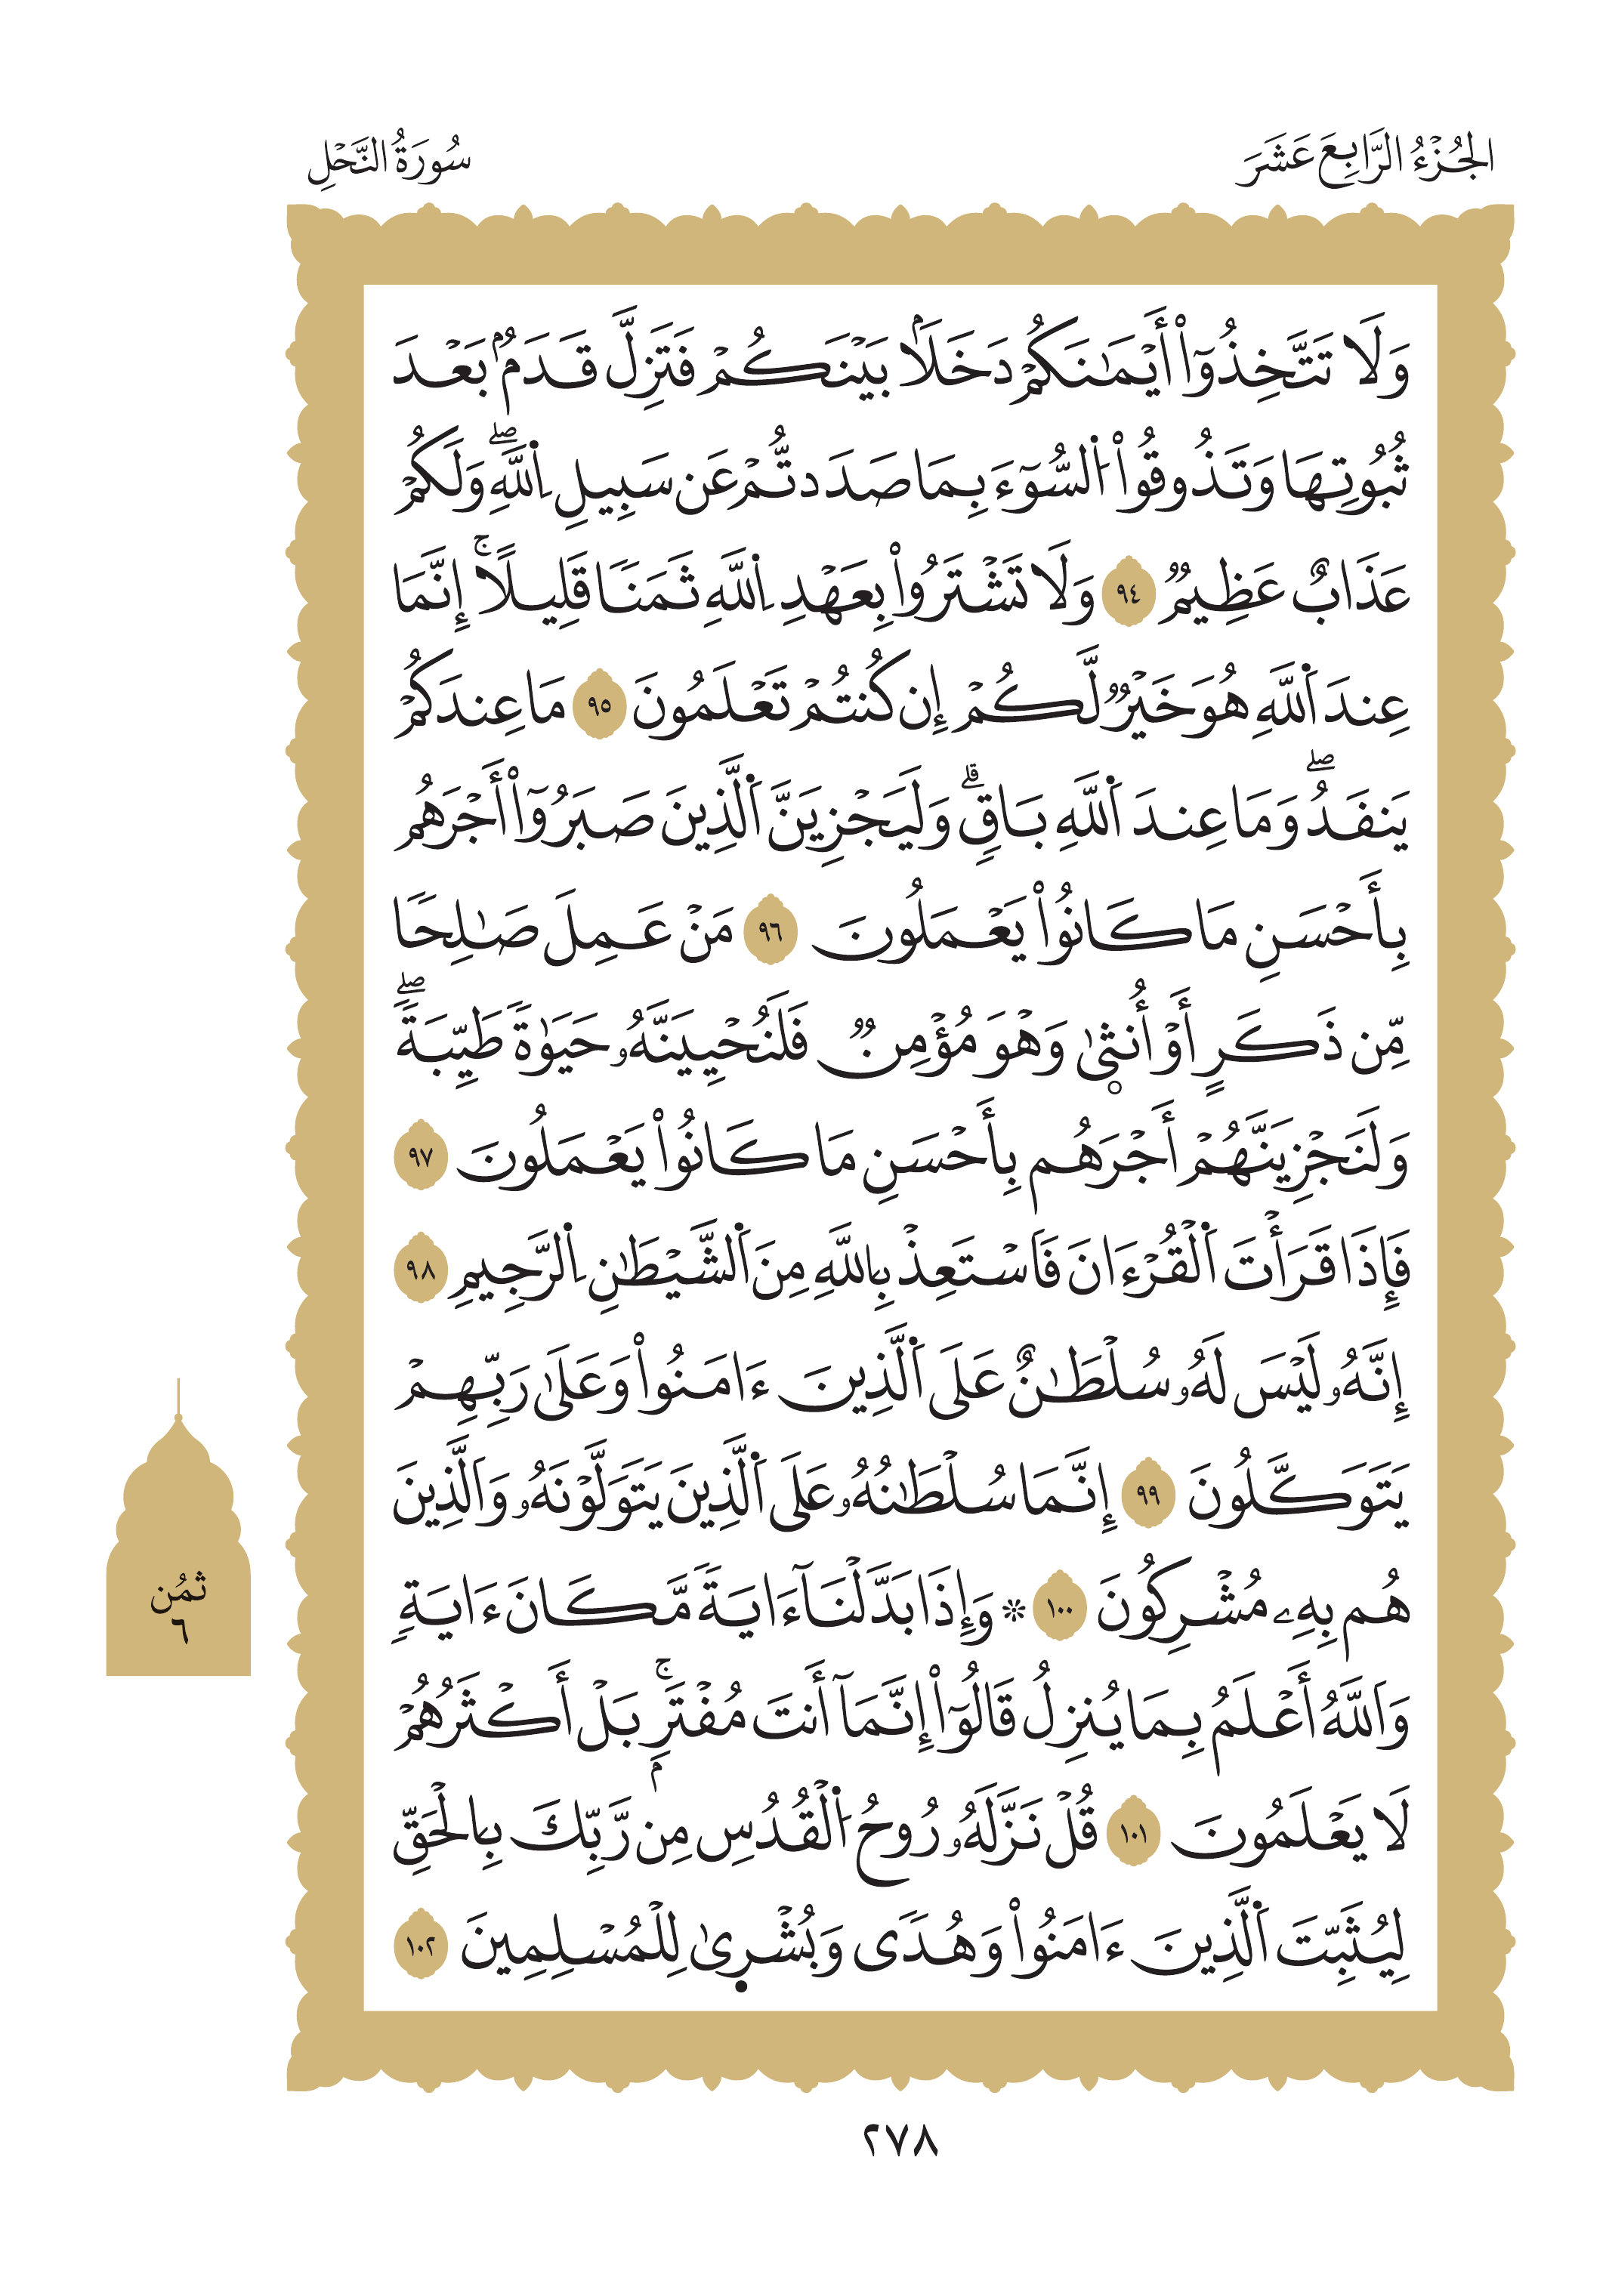 الجُزْءُ الرَّابِعَ عَشَرَ
سُورَةُ النَّحْلِ
وَلَا تَتَّخِذُوٓاْ أَيْمَٰنَكُمْ دَخَلَۢا بَيْنَكُمْ فَتَزِلَّ قَدَمُۢ بَعْدَ
ثُبُوتِهَا وَتَذُوقُواْ اُ۬لسُّوٓءَ بِمَا صَدَدتُّمْ عَن سَبِيلِ اِ۬للَّهِۖ وَلَكُمْ
عَذَابٌ عَظِيمٞ ٩٤ وَلَا تَشْتَرُواْ بِعَهْدِ اِ۬للَّهِ ثَمَنٗا قَلِيلًاۚ إِنَّمَا
عِندَ اَ۬للَّهِ هُوَ خَيْرٞ لَّكُمْ إِن كُنتُمْ تَعْلَمُونَ ٩٥ مَا عِندَكُمْ
يَنفَدُۖ وَمَا عِندَ اَ۬للَّهِ بَاقٖۗ وَلَيَجْزِيَنَّ اَ۬لَّذِينَ صَبَرُوٓاْ أَجْرَهُم
بِأَحْسَنِ مَا كَانُواْ يَعْمَلُونَ ٩٦ مَنْ عَمِلَ صَٰلِحٗا
مِّن ذَكَرٍ أَوْ أُنث۪ىٰ وَهْوَ مُؤْمِنٞ فَلَنُحْيِيَنَّهُۥ حَيَوٰةٗ طَيِّبَةٗۖ
وَلَنَجْزِيَنَّهُمْ أَجْرَهُم بِأَحْسَنِ مَا كَانُواْ يَعْمَلُونَ ٩٧
فَإِذَا قَرَأْتَ اَ۬لْقُرْءَانَ فَاسْتَعِذْ بِاللَّهِ مِنَ اَ۬لشَّيْطَٰنِ اِ۬لرَّجِيمِ ٩٨
إِنَّهُۥ لَيْسَ لَهُۥ سُلْطَٰنٌ عَلَى اَ۬لَّذِينَ ءَامَنُواْ وَعَلَىٰ رَبِّهِمْ
يَتَوَكَّلُونَ ٩٩ إِنَّمَا سُلْطَٰنُهُۥ عَلَى اَ۬لَّذِينَ يَتَوَلَّوْنَهُۥ وَالَّذِينَ
هُم بِهِۦ مُشْرِكُونَ ١٠٠ ۞ وَإِذَا بَدَّلْنَآ ءَايَةٗ مَّكَانَ ءَايَةٖ
وَاَللَّهُ أَعْلَمُ بِمَا يُنزِلُ قَالُوٓاْ إِنَّمَآ أَنتَ مُفْتَرِۭۚ بَلْ أَكْثَرُهُمْ
لَا يَعْلَمُونَ ١٠١ قُلْ نَزَّلَهُۥ رُوحُ اُ۬لْقُدُسِ مِن رَّبِّكَ بِالْحَقِّ
لِيُثَبِّتَ اَ۬لَّذِينَ ءَامَنُواْ وَهُدٗى وَبُشْر۪ىٰ لِلْمُسْلِمِينَ ١٠٢
ثُمُن
٦
٢٧٨